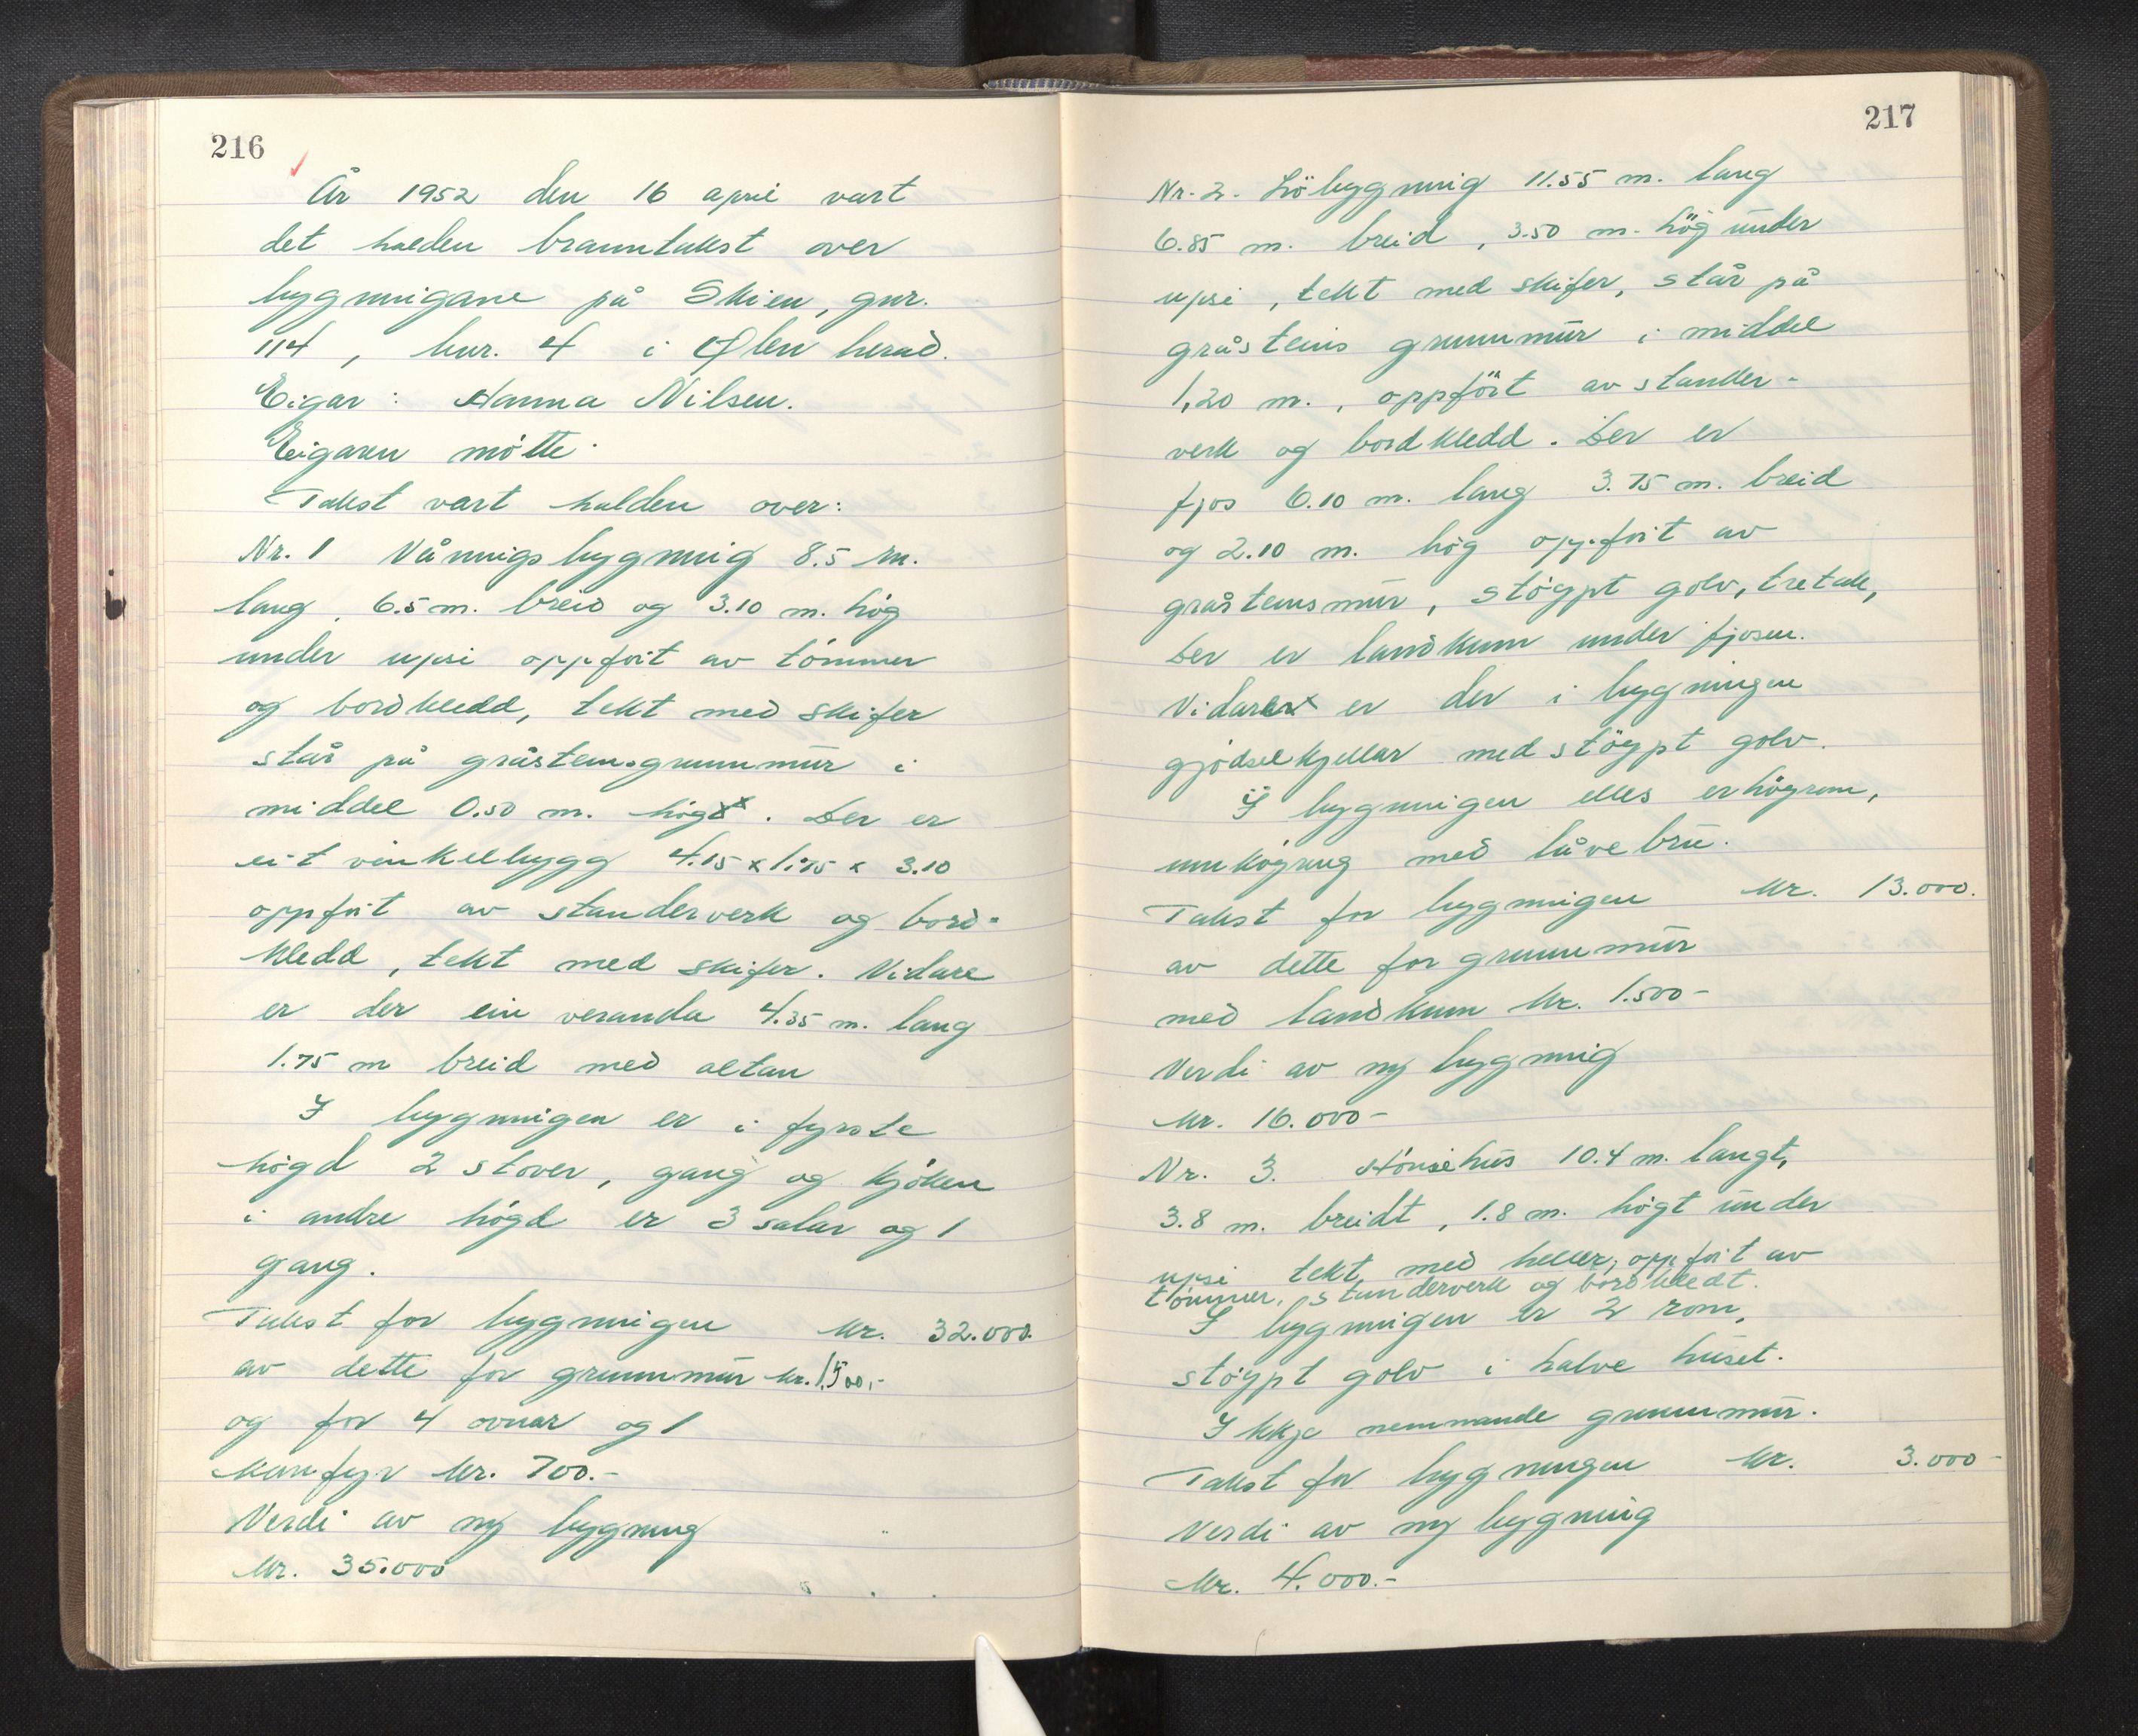 216
År 1952 den 16 april vart
det halden branntakst over
bygningane på Skien, gnr.
114, bnr. 4 i Ølen herad.
Eigar: Hanna Nilsen.
Eigaren møtte.
Takst vart halden over:
Nr. 1 Våningsbygning 8.5 m.
lang, 6.5 m. breid og 3.10 m. høg
under upsi oppført av tømmer
og bordkledd, tekt med skifer
står på gråsteinsgrunnmur i
middel 0.50 m. høg. Der er
eit vinkelbygg 4.15 x 1.75 x 3.10
oppført av standerverk og bord-
kledd, tekt med skifer. Vidare
er der ein veranda 4.35 m. lang
1.75 m breid med altan
I bygningen er i fyrste
høgd 2 stover, gang og kjøken
i andre høgd er 3 salar og 1
gang.
Takst for bygningen kr. 32.000.
av dette for grunnmur kr. 1.500,-
og for 4 ovnar og 1
komfyr kr. 700.-
Verdi av ny bygning
kr. 35.000
217
Nr. 2. Löbygning 11.55 m. lang
6.85 m. breid, 3.50 m. hög under
upsi, tekt med skifer, står på
gråsteins grunnmur i middel
1,20 m., oppfört av stander-
verk og bordkledd. Der er
fjos 6.10 m. lang 3.75 m. breid
og 2.10 m. høg oppført av
gråsteinsmur, støypt golv, tretak,
Der er landkum under fjosen.
Vidare er der i bygningen
gjødselkjellar med støypt golv.
I bygningen elles er høyrom,
innkøyring med låvebru.
Takst for bygningen kr. 13.000.
av dette for grunnmur
med landkum kr. 1.500-
Verdi av ny bygning
kr. 16.000-
Nr. 3. Hønsehus 10.4 m. langt,
3.8 m. breidt, 1.8 m. høgt under
upsi tekt med heller, oppført av
tømmer, standerverk og bordkledt.
I bygningen er 2 rom,
støypt golv i halve huset.
Ikkje nemnande grunnmur.
Takst for bygningen kr. 3.000-
Verdi av ny bygning
kr. 4.000.-